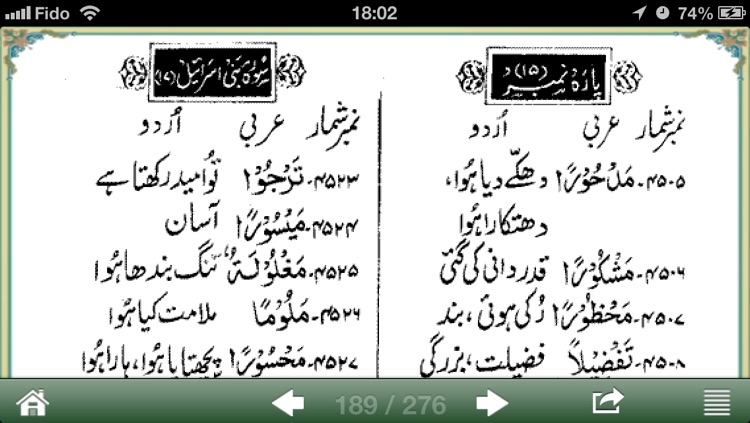 Fido 18:02 74%
پارہ نمبر (۱۵)
نمبر شمار عربی اُردو
۴۵۰۵۔ مَدْحُوْرًا دھکّے دیا ہوا،
دھتکارا ہوا
۴۵۰۶۔ مَشْكُوْرًا قدر دانی کی گئی
۴۵۰۷۔ مَحْظُوْرًا رُکی ہوئی، بند
۴۵۰۸۔ تَفْضِيْلًا فضیلت، بزرگی
سُورۃ بنی اسرائیل (۱۷)
نمبر شمار عربی اُردو
۴۵۲۳۔ تَرْجُوْا تو امید رکھتا ہے
۴۵۲۴۔ مَيْسُوْرًا آسان
۴۵۲۵۔ مَغْلُوْلَةً تنگ بندھا ہوا
۴۵۲۶۔ مَلُوْمًا ملامت کیا ہوا
۴۵۲۷۔ مَحْسُوْرًا پچھتایا ہوا، ہارا ہوا
189 / 276